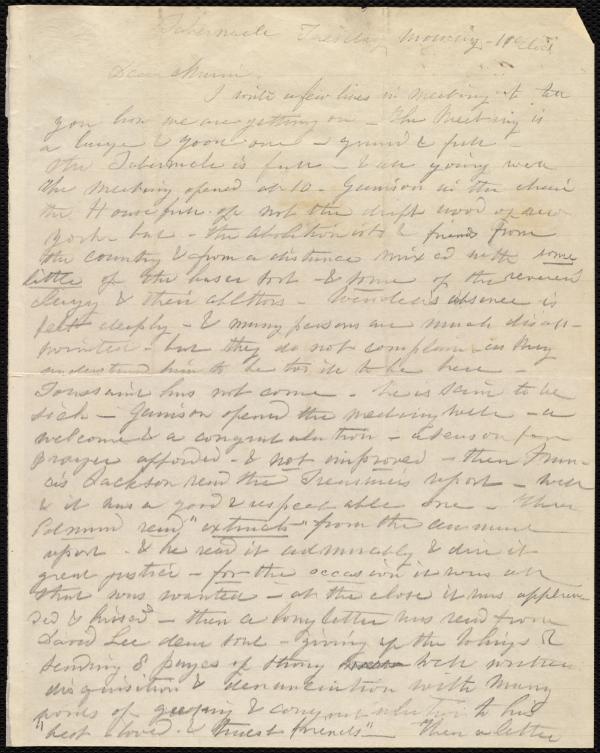 Tabernacle Tuesday morning - 10 o'clock
Dear Maria
I write a few lines in meeting to tell
you how we are getting on - The Meeting is
a large & good one - grand & full -
the Tabernacle is full - & all going well
The meeting opened at 10 - Garrison in the chair
the House full of not the drift wood of New
York but - the abolitionists & friends from
the country & from a distance mixed with some
little of the baser sort - & some of the reverend
Clergy & their abettors - Wendell's absence is
felt deeply - & many persons are much disap-
pointed - but they do not complain as they
understand him to be too ill to be here -
Toussaint has not come - he is said to be
sick - Garrison opened the meeting well - a
welcome & a congratulation - a season for
prayer afforded - & not improved - then Fran-
cis Jackson read the Treasurers report - well
& it was a good & respectable one - Then
Edmund read "extracts" from the annual
report - & he read it admirably & did it
great justice - for the occasion it was all
that was wanted - at the close it was applau-
ded & hissed - then a long letter was read from
David Lee dear soul - giving up the Whigs &
sending 8 pages of strong well written
disquisition & denunciation with many
words of greeting & congratulation to his
"best loved & truest friends" - Then a letter